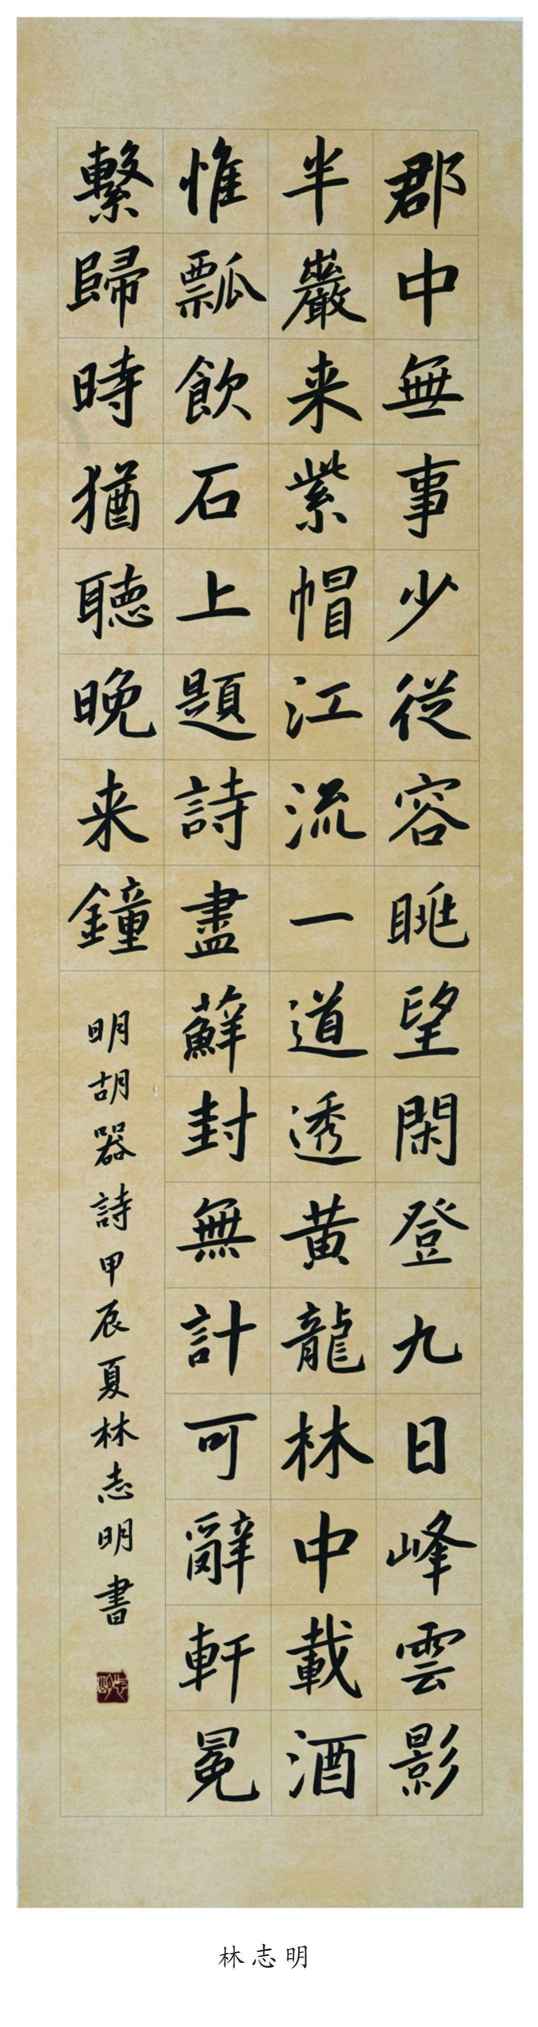 郡中無事少從容眺望閑登九日峰雲影
半巖来紫帽江流一道透黄龍林中載酒
惟瓢飲石上題詩盡蘚封無計可辭軒冕
繫歸時猶聽晚来鐘
明胡器詩甲辰夏林志明書
林志明